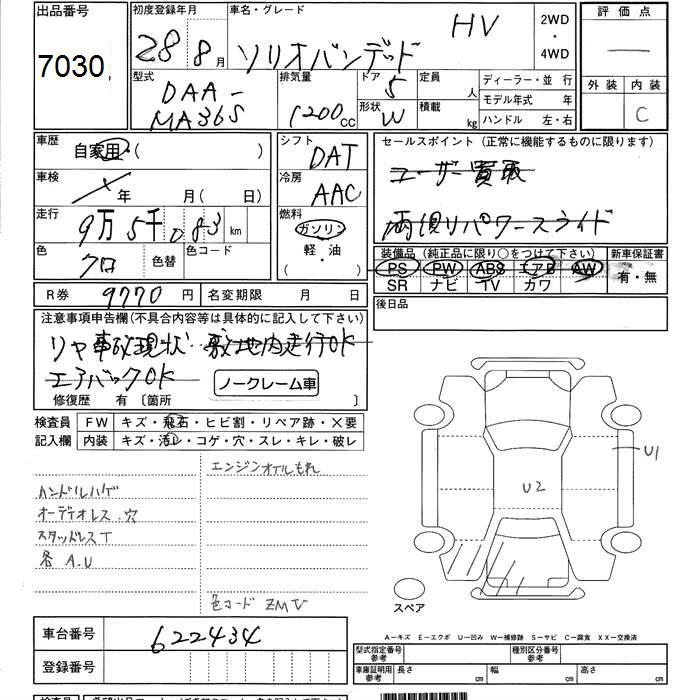 出品番号
7030
初度登録年月
28 8月
車名・グレード
ソリオバンデッド HV
2WD
・
4WD
評価点
—
外装 内装
C
型式
DAA-
MA36S
排気量
1200cc
ドア 5
形状 W
定員 人
積載 kg
ディーラー・並行
モデル年式 年
ハンドル 左・右
車歴
自家用・( )
車検
年 月( 日)
走行
9万5千083km
色
クロ
色替
色コード
シフト
DAT
冷房
AAC
燃料
ガソリン
軽・油
( )
セールスポイント(正常に機能するものに限ります)
ユーザー買取
両側リパワースライド
装備品(純正品に限り○をつけて下さい)
PS PW ABS エアB AW
SR ナビ TV カワ
新車保証書
有・無
後日品
R券 9770円
名変期限 月 日
注意事項申告欄(不具合内容等は具体的に記入して下さい)
リヤ事故現状 敷地内走行OK
エアバックOK
ノークレーム車
修復歴 有 〔箇所 〕
検査員
記入欄
FW キズ・飛石・ヒビ割・リペア跡・×要
内装 キズ・汚レ・コゲ・穴・スレ・キレ・破レ
エンジンオイルもれ
ハンドルハゲ
オーディオレス.穴
スタッドレスT
各 A.U
色コード ZMV
U1
U2
スペア
A－キズ E－エクボ U－凹み W－補修跡 S－サビ C－腐食 XX－交換済
車台番号
622434
登録番号
型式指定番号
参考
種別区分番号
参考
車庫証明用
参考
長さ cm
幅 cm
高さ cm